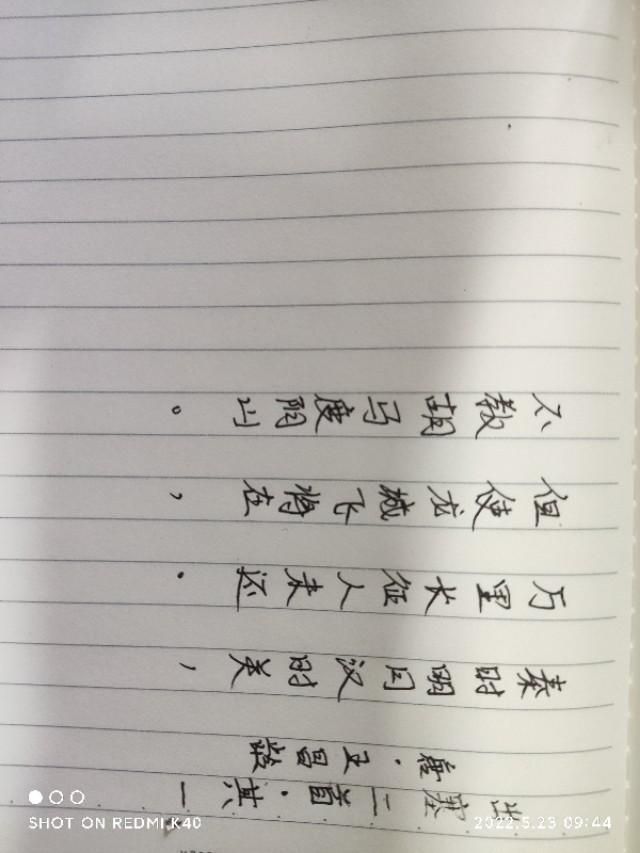 出塞二首·其一
唐·王昌龄
秦时明月汉时关，
万里长征人未还.
但使龙城飞将在，
不教胡马度阴山。
SHOT ON REDMI K40
2022.5.23 09:44